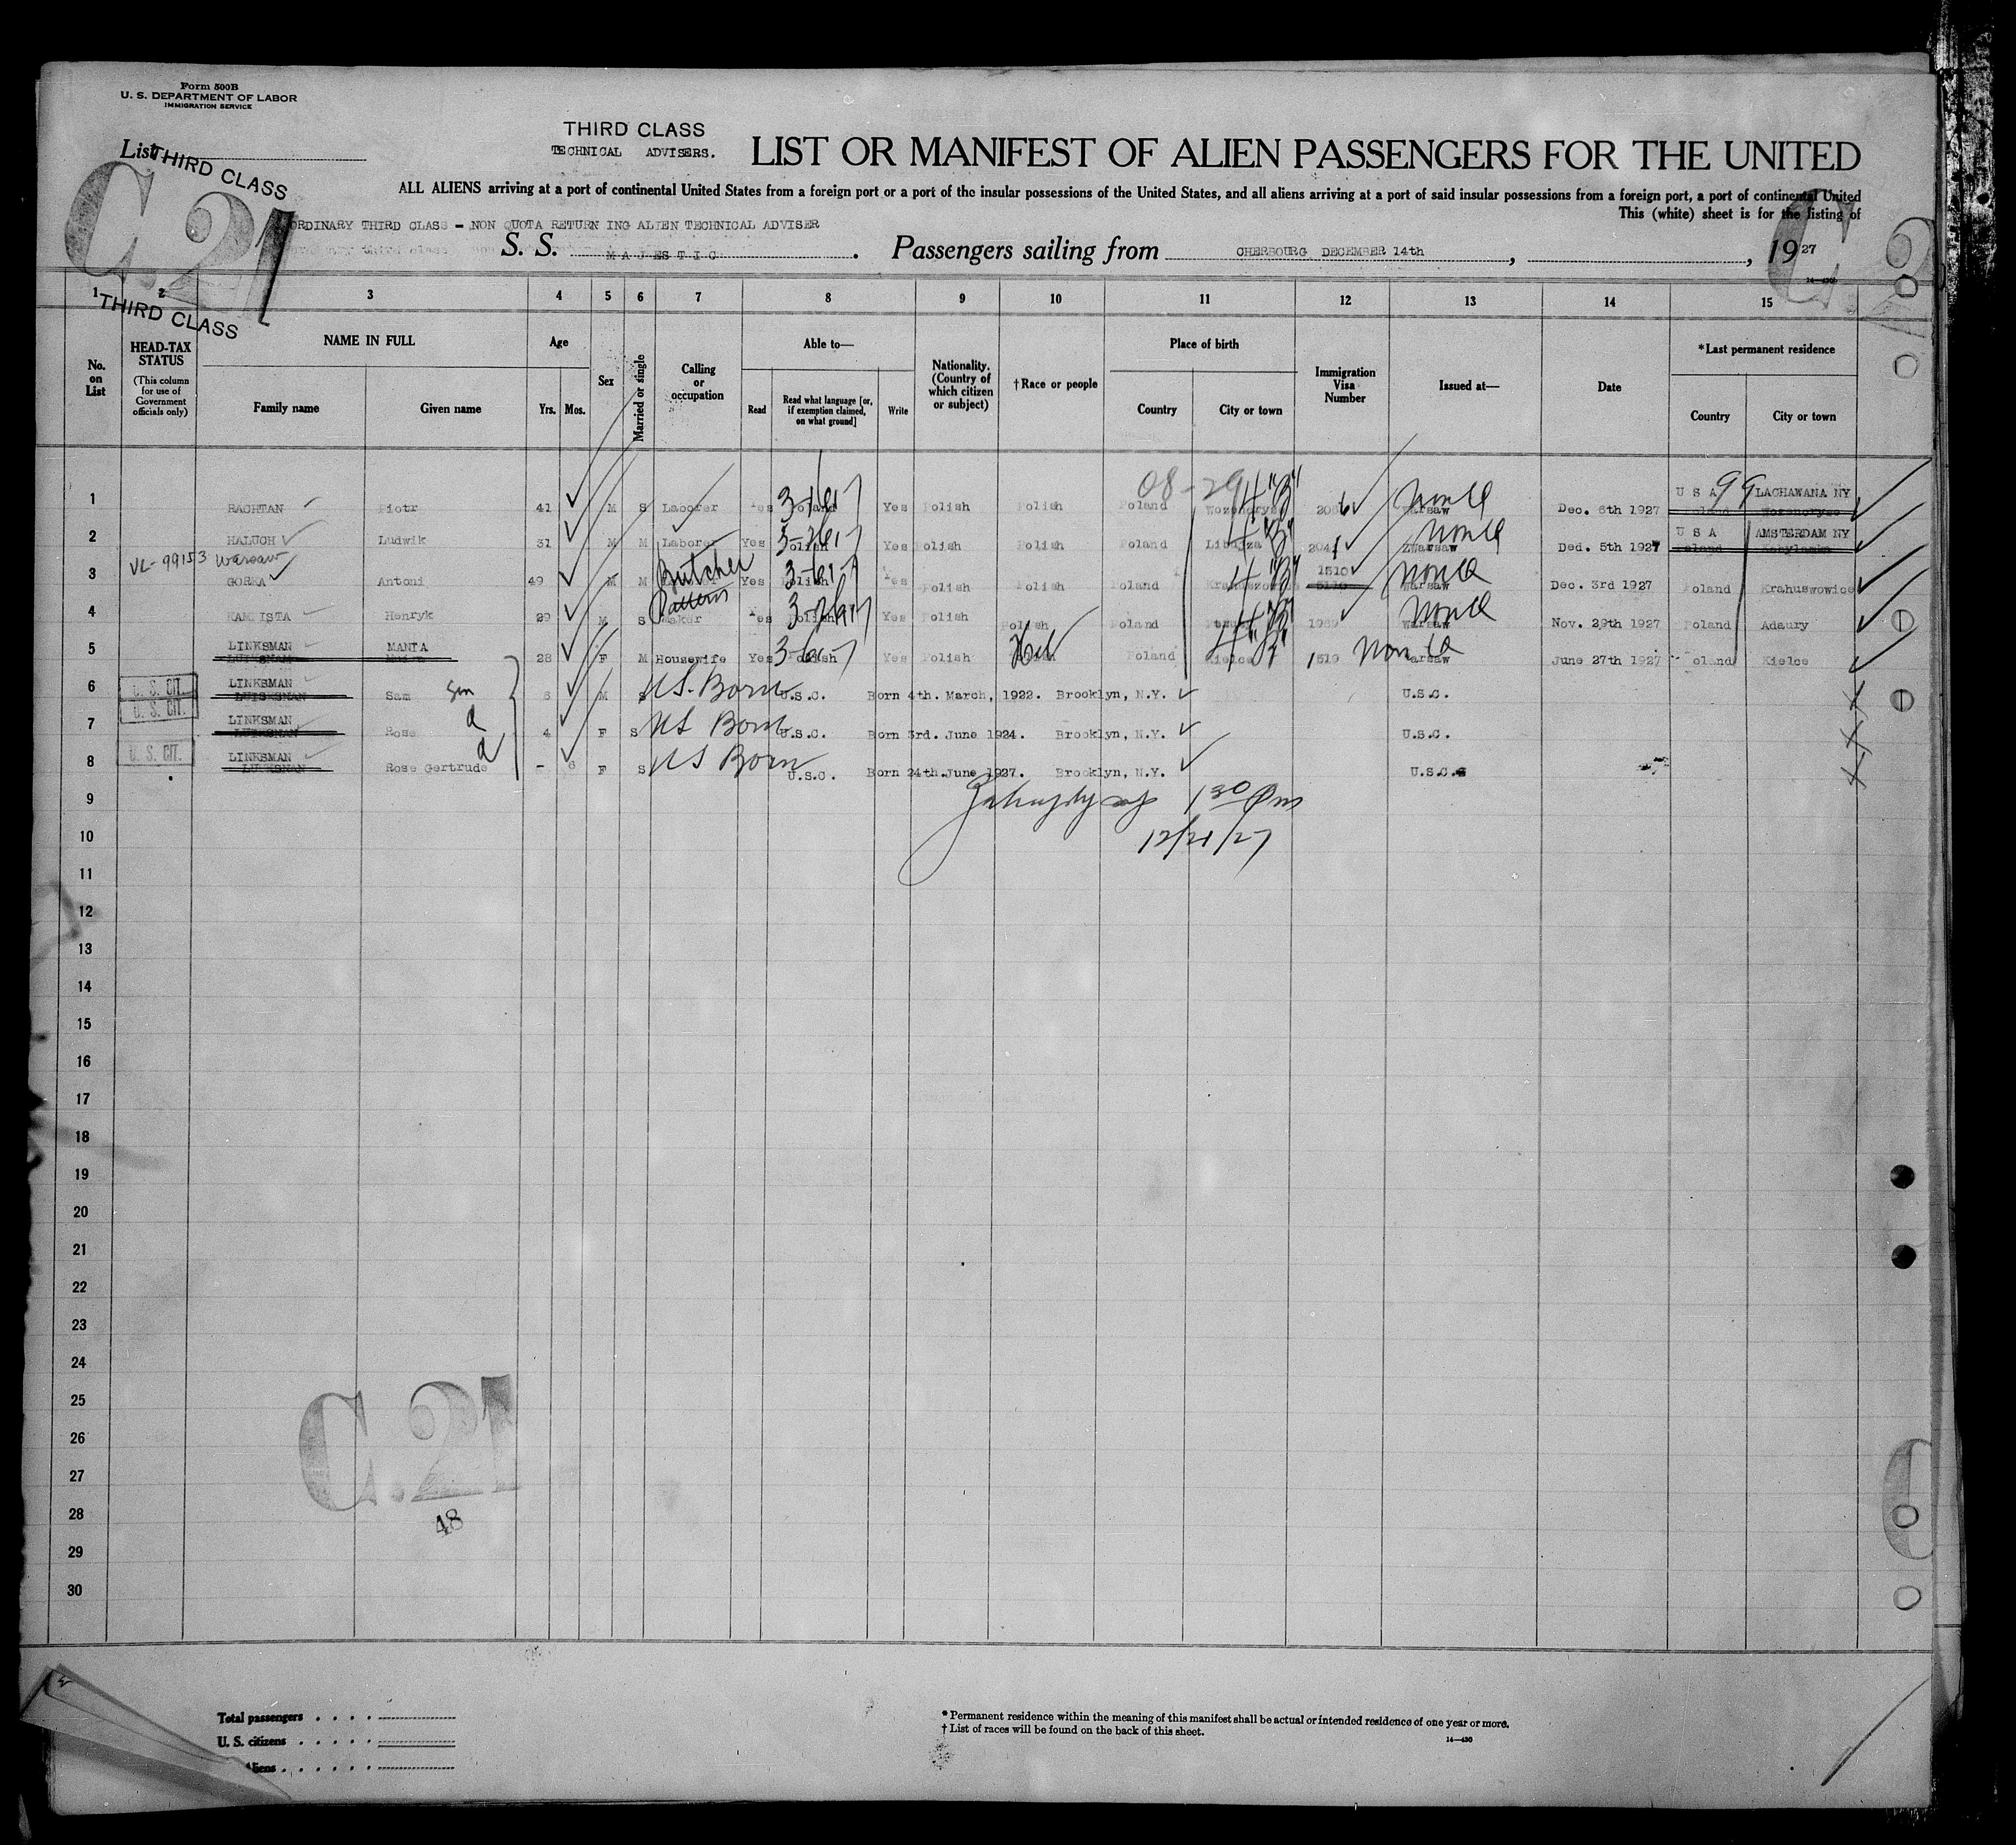 Form 500B
U. S. DEPARTMENT OF LABOR
IMMIGRATION SERVICE
List
THIRD CLASS
THIRD CLASS
TECHNICAL ADVISERS.
LIST OR MANIFEST OF ALIEN PASSENGERS FOR THE UNITED
ALL ALIENS arriving at a port of continental United States from a foreign port or a port of the insular possessions of the United States, and all aliens arriving at a port of said insular possessions from a foreign port, a port of continental United
This (white) sheet is for the listing of
C.21
C.2
ORDINARY THIRD CLASS - NON QUOTA RETURN ING ALIEN TECHNICAL ADVISER
S. S. MAJESTIC. Passengers sailing from CHERBOURG DECEMBER 14th, , 1927
14—430
1 2 3 4 5 6 7 8 9 10 11 12 13 14 15
THIRD CLASS
No. on List
HEAD-TAX STATUS
(This column for use of Government officials only)
NAME IN FULL
Family name Given name
Age
Yrs. Mos.
Sex
Married or single
Calling or occupation
Able to—
Read
Read what language [or, if exemption claimed, on what ground]
Write
Nationality. (Country of which citizen or subject)
†Race or people
Place of birth
Country City or town
Immigration Visa Number
Issued at—
Date
*Last permanent residence
Country City or town
08-29 4"B" 99
1 RACHTAN Piotr 41 M S Laborer Yes Poland Yes Polish Polish Poland Warsaw Dec. 6th 1927 U S A LACHAWANA NY
2 HALUCH Ludwik 31 M M Laborer Yes Polish Yes Polish Polish Poland Libuza 2041 Warsaw Ded. 5th 1927 U S A AMSTERDAM NY
VL-99153 Warsaw
3 GORKA Antoni 49 M M Butcher Yes Polish Yes Polish Polish Poland 1510 Warsaw Dec. 3rd 1927 Poland Krahuswowice
4 Henryk 29 M S Pattern Maker Yes Polish Yes Polish Polish Poland Warsaw Nov. 29th 1927 Poland Adaury
5 LINKSMAN MANIA 28 F M Housewife Yes Polish Yes Polish Heb Poland Kielce 1519 Warsaw June 27th 1927 Poland Kielce
6 U. S. CIT. LINKSMAN Sam Son 6 M S US. Born U.S.C. Born 4th. March, 1922. Brooklyn, N.Y. U.S.C.
U. S. CIT.
7 LINKSMAN Rose d 4 F S US Born U.S.C. Born 3rd. June 1924. Brooklyn, N.Y. U.S.C.
8 U. S. CIT. LINKSMAN Rose Gertrude d - 6 F S US Born U.S.C. Born 24th. June 1927. Brooklyn, N.Y. U.S.C.
9 1 30 Pm
10 12/21/27
11
12
13
14
15
16
17
18
19
20
21
22
23
24
25
26
27
28
29
30
C.21
48
Total passengers
U. S. citizens
Aliens
* Permanent residence within the meaning of this manifest shall be actual or intended residence of one year or more.
† List of races will be found on the back of this sheet.
14—430